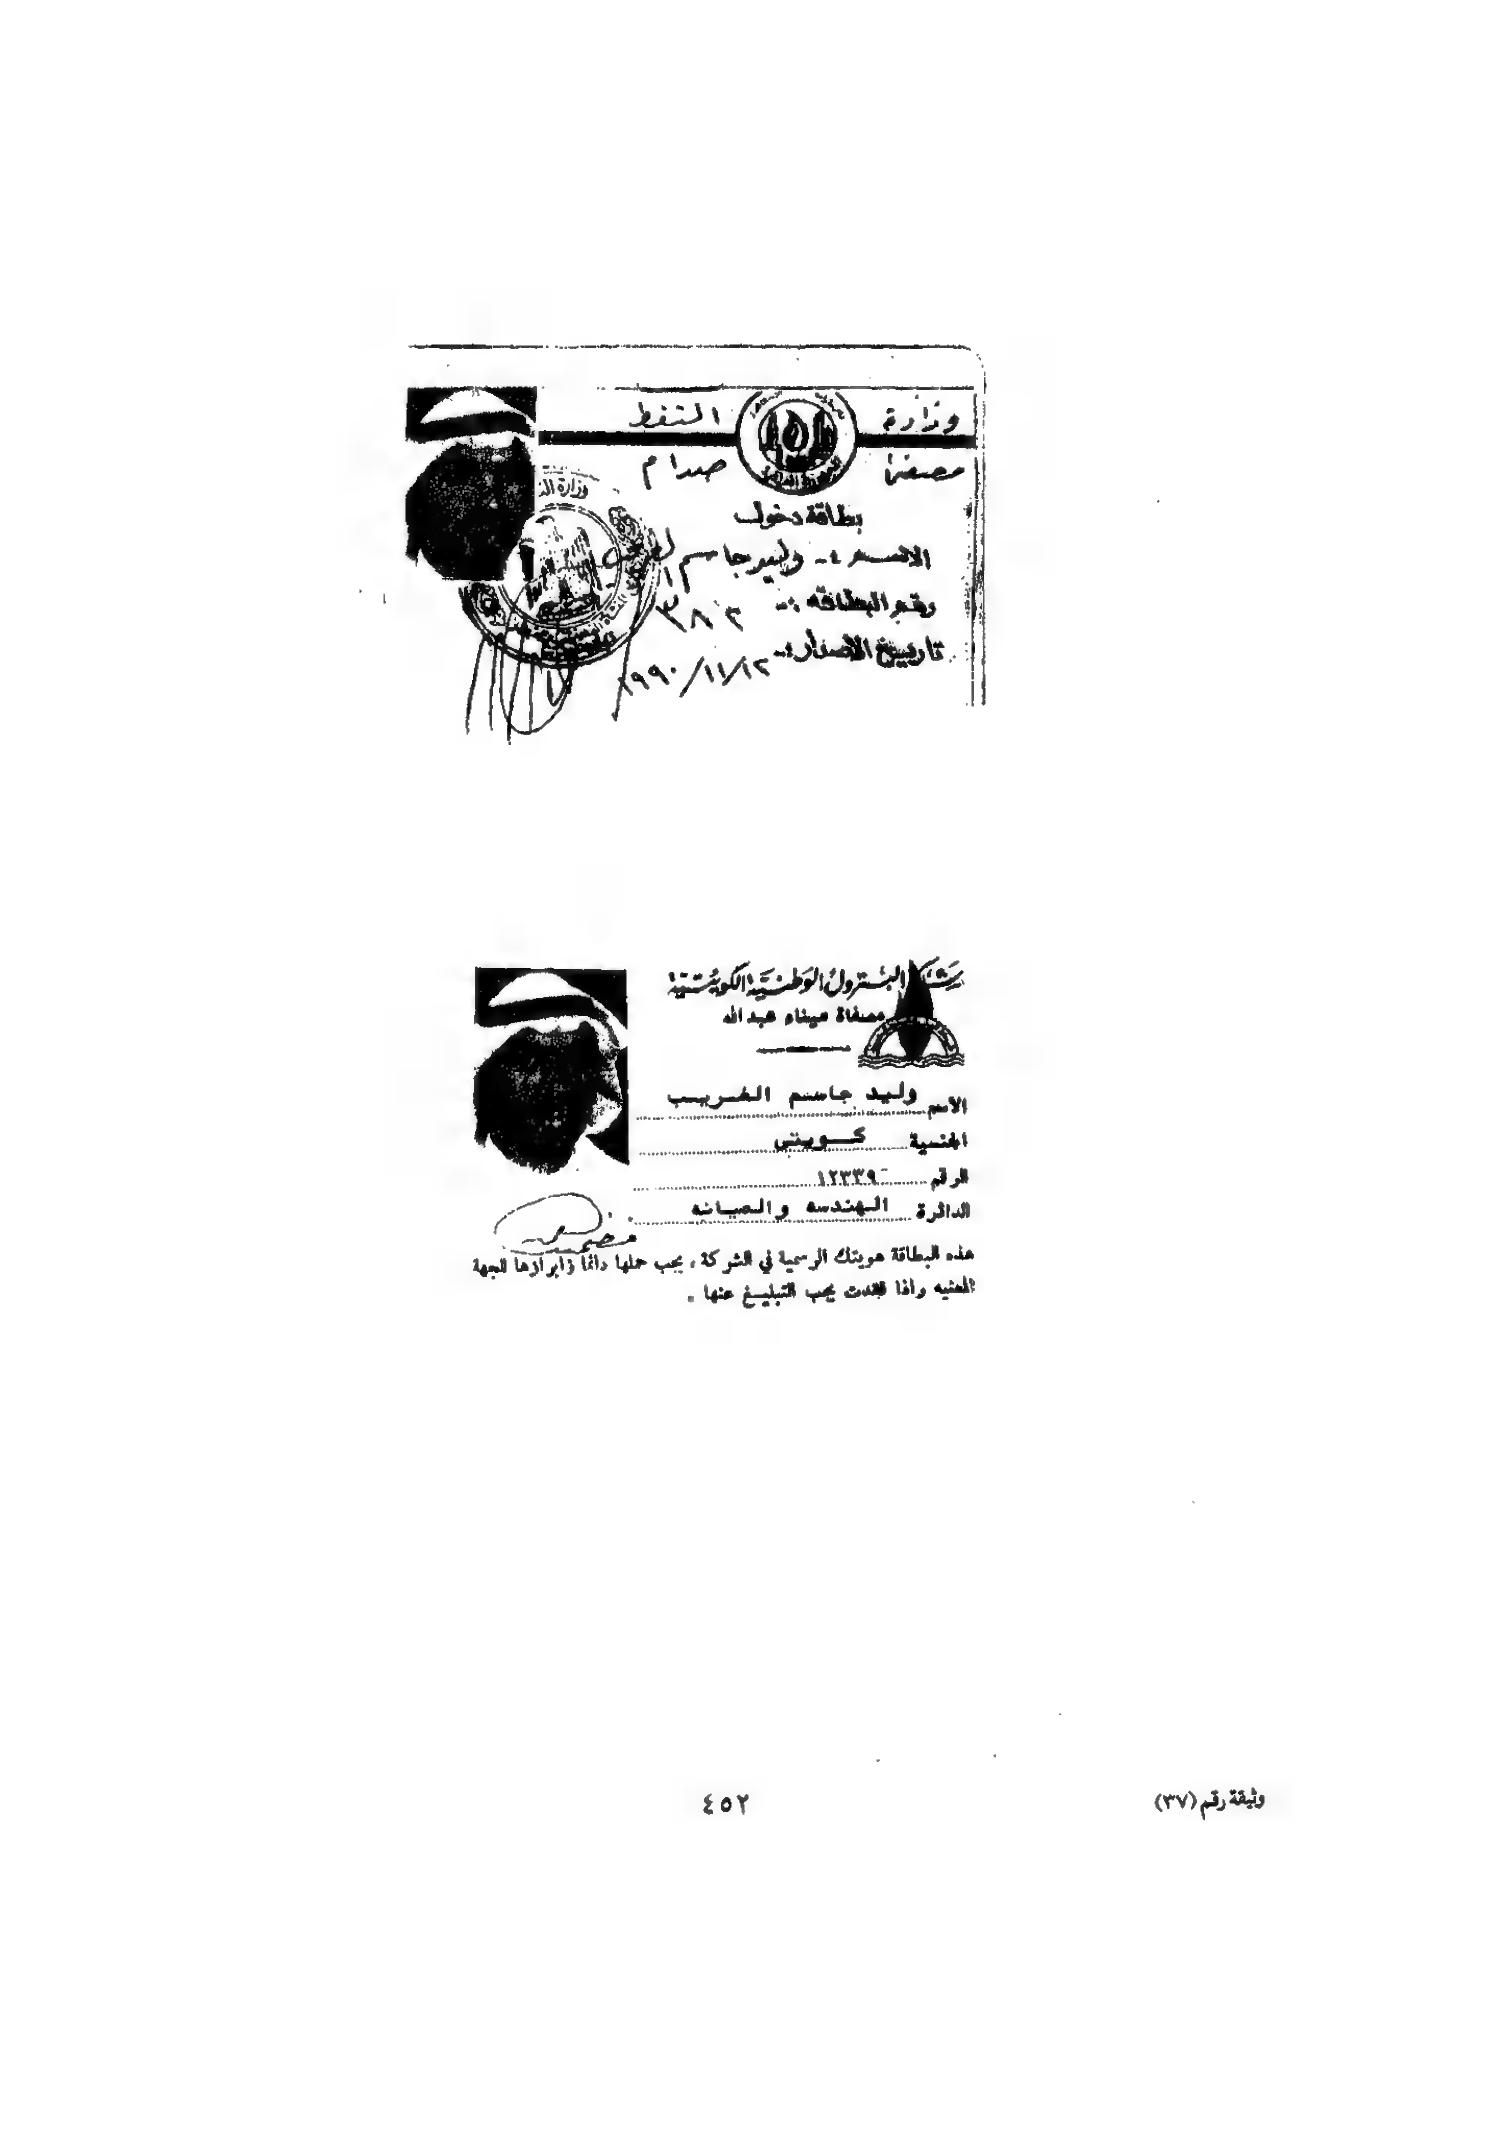 وزارة النفط
مصفى صدام
بطاقة دخول
الاسم :- وليد جاسم الغريب
رقم البطاقه :-
تاريخ الاصدار :- ١٩٩٠/١١/١٢
وزارة
شركة البترول الوطنية الكويتية
مصفاة ميناء عبدالله
الاسم وليد جاسم الغريب
الجنسية كويتي
الرقم ١٢٣٣٩
الدائرة الهندسه والصيانه
هذه البطاقة هويتك الرسمية في الشركة ، يجب حملها دائما وابرازها للجهة
المعنيه واذا فقدت يجب التبليغ عنها .
وثيقة رقم (٣٧)
٤٥٢